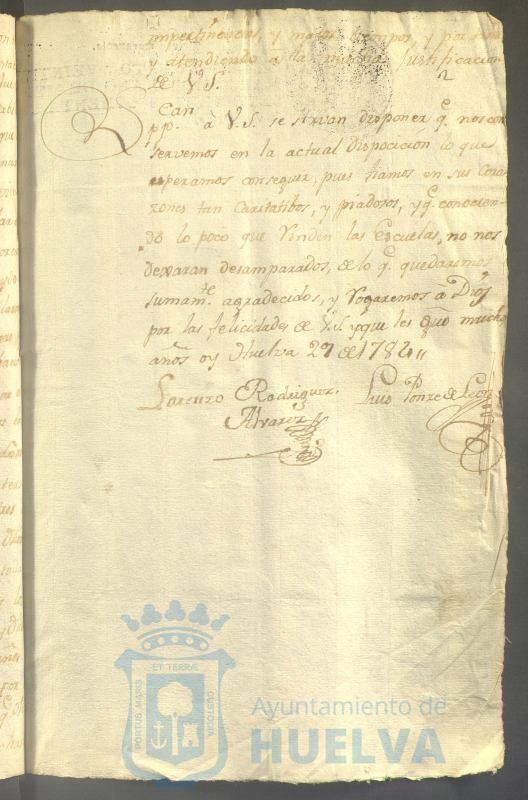 impertinencias, y malos tiempos, y por tanto
y atendiendo à la misma Justificacion
de V.S.
Can
pp.n à V.S. se sirvan disponer q.e nos con
servemos en la actual disposicion, lo que
esperamos conseguir, pues fiamos en sus Cora
zones tan Caritatibos, y piadosos, y q.e conocien
do lo poco que Rinden las Escuelas, no nos
dexaran desamparados, de lo q.e quedaremos
sumam.te agradecidos, y Rogaremos à Dios
por las felicidades de V.S. y que les gûe muchos
años oy Huelva 29 de 1784
Lorenzo Rodriguez
Alvarez
Luis Ponze de Leon
ET TERRÆ
PORTUS MARIS
CUSTODIA
Ayuntamiento de
HUELVA